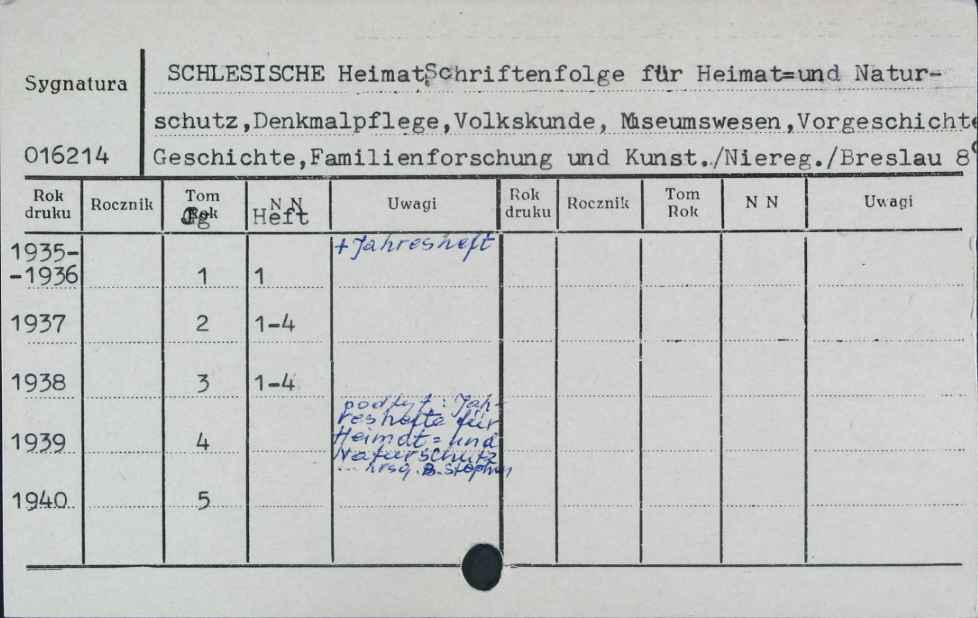 Sygnatura
016214
SCHLESISCHE Heimat,Schriftenfolge für Heimat=und Natur-
schutz,Denkmalpflege,Volkskunde, Museumswesen,Vorgeschichte
Geschichte,Familienforschung und Kunst./Niereg./Breslau 8°
Rok druku Rocznik Tom Rok Jg N N Heft Uwagi Rok druku Rocznik Tom Rok N N Uwagi
1935-
-1936 1 1 + Jahresheft
1937 2 1-4
1938 3 1-4
1939 4 podtyt: Jah-
reshefte für
Heimat= und
Naturschutz
... hrsg. B. Stephan
1940 5